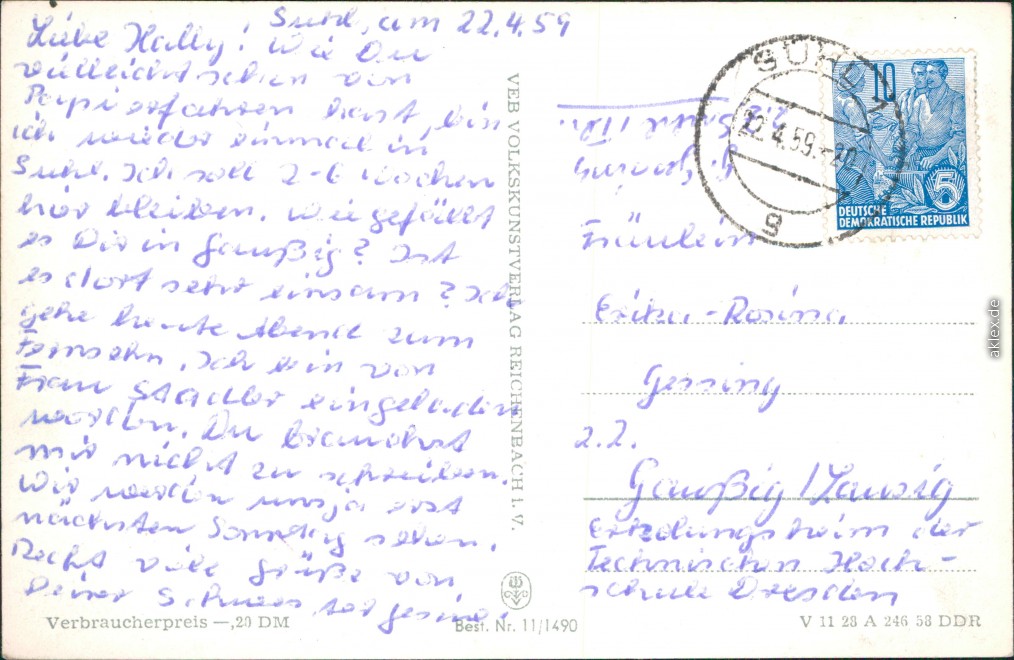 Suhl, am 22.4.59
Liebe Hally! Wie Du
vielleicht schon von
Papi erfahren hast, bin
ich wieder einmal in
Suhl. Ich soll 2-6 Wochen
hier bleiben. Wie gefällt
es Dir in Gaußig? Ist
es dort sehr einsam? Ich
gehe heute Abend zum
Fernsehn. Ich bin von
Frau Stadler eingeladen
worden. Du brauchst
mir nicht zu schreiben.
Wir werden uns ja erst
nächsten Sonntag sehen.
Recht viele Grüße von
Deiner Schwester Gesine!
Verbraucherpreis —,20 DM
VEB VOLKSKUNSTVERLAG REICHENBACH I. V.
Best. Nr. 11/1490
SUHL
22.4.59.-20
g
10
5
DEUTSCHE
DEMOKRATISCHE REPUBLIK
Suhl
Fräulein
Erika-Rosina
Gessing
z.Z.
Gaußig / Lausig
Erholungsheim der
Technischen Hoch-
schule Dresden
V 11 28 A 246 58 DDR
aklex.de